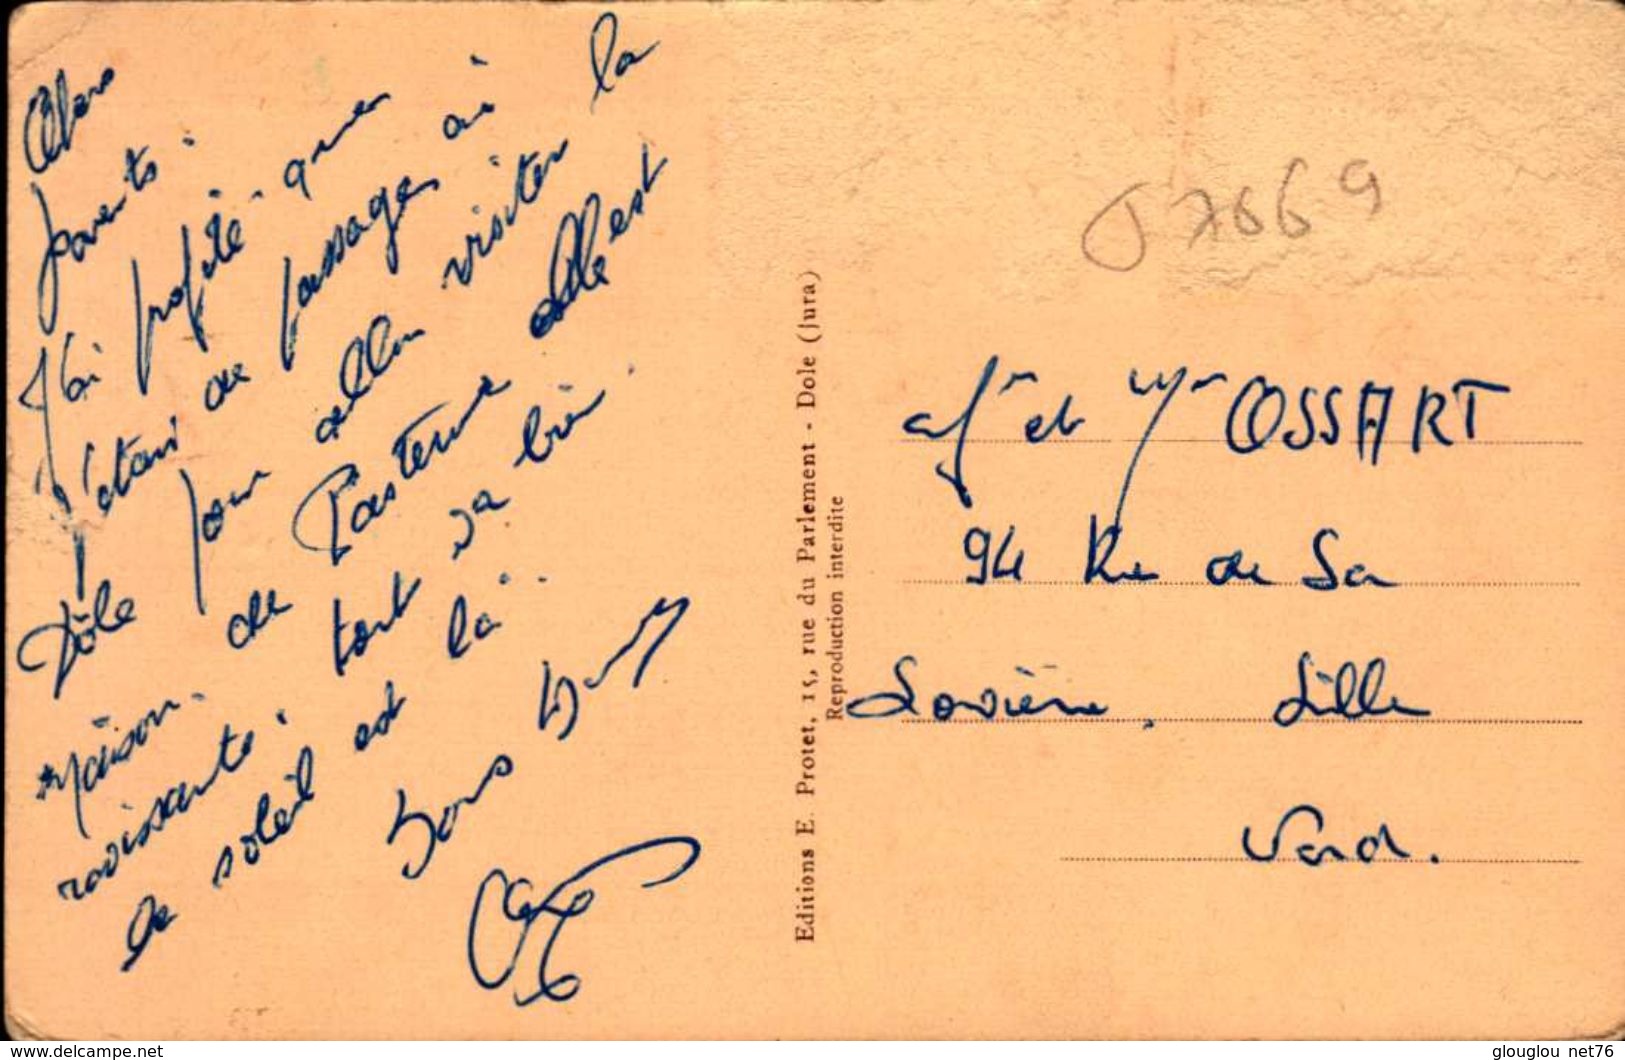 Chers
Parents.
J'ai profité que
j'étais de passage à
Dôle pour aller visiter la
Maison de Pasteur elle est
ravissante. tout va bien.
le soleil est là.
Bons
Editions E. Protet, 15, rue du Parlement - Dole (Jura)
Reproduction interdite
J 7669
Mr et Mme COSSART
94 Rue de La
Louvière. Lille
Nord.
www.delcampe.net
glouglou_net76